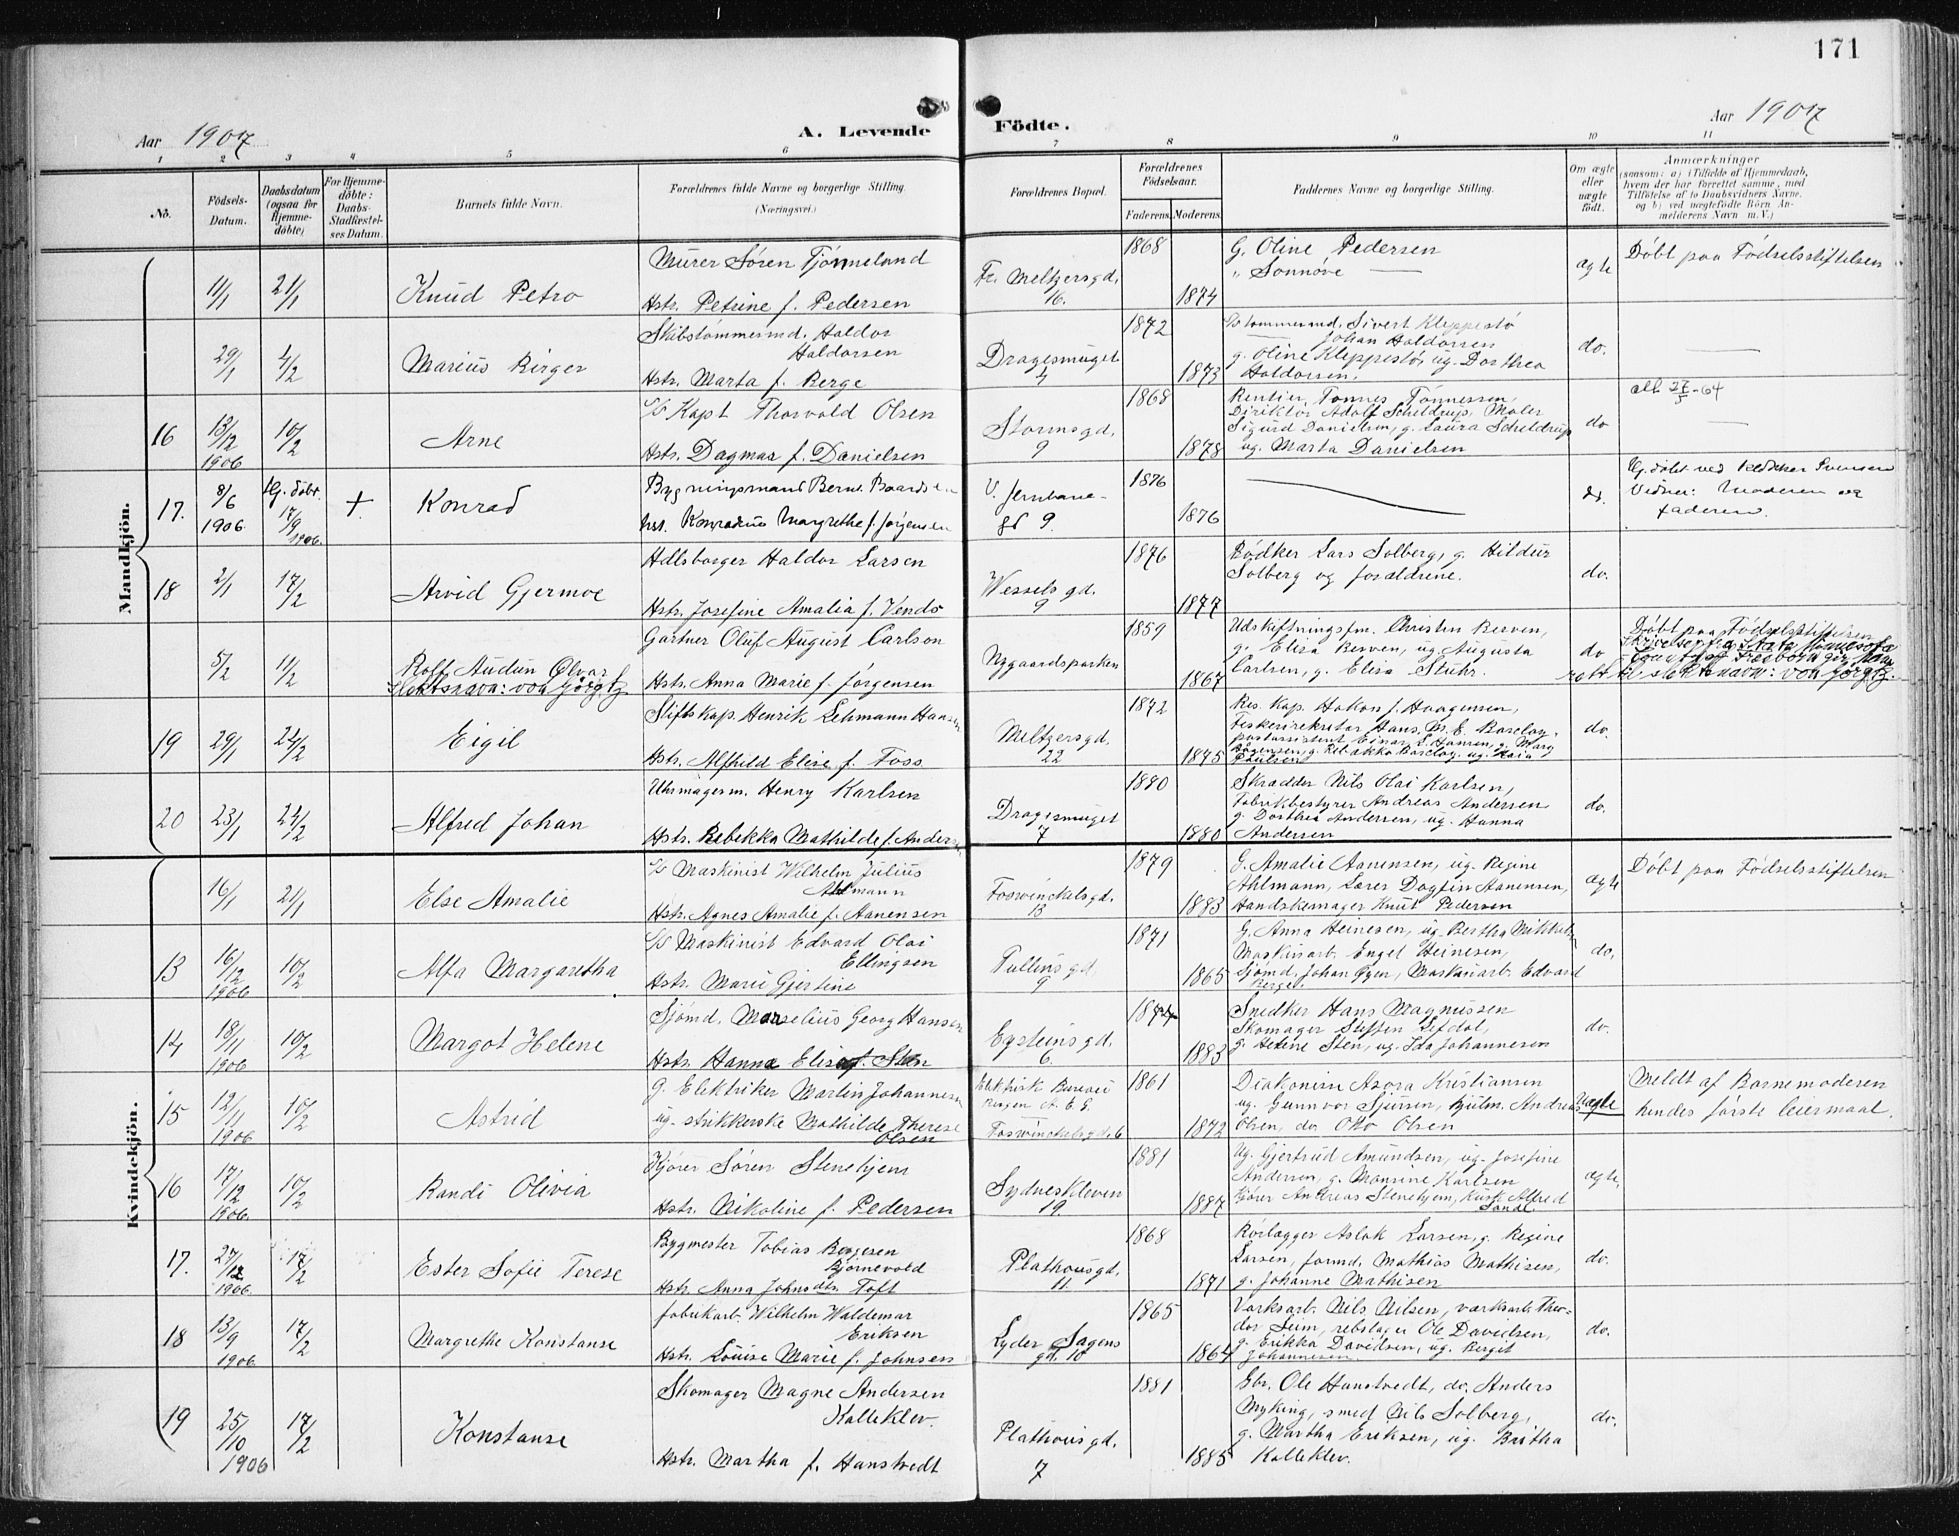 171
Aar 1907
A. Levende Födte.
Aar 1907
1 2 3 4 5 6 7 8 9 10 11
No.
Födsels-Datum.
Daabsdatum (ogsaa for Hjemme-döbte)
For Hjemme-döbte: Daabs-Stadfæstel-ses Datum.
Barnets fulde Navn.
Forældrenes fulde Navne og borgerlige Stilling.
(Næringsvei.)
Forældrenes Bopæl.
Forældrenes Födselsaar.
Faderens. Moderens.
Faddernes Navne og borgerlige Stilling.
Om ægte eller uægte födt.
Anmærkninger
(saasom: a) i Tilfælde af Hjemmedaab, hvem der har forrettet samme, med Tilföielse af to Daabsvidners Navne. og b) ved uægtefödte Börn An-melderens Navn m. V.)
Mandkjön.
11/1 21/1 Knud Petro
Murer Søren Tjønneland
Hstr. Petrine f. Pedersen
Fr. Meltzersgd. 16.
1868 1874
G. Oline Pedersen
" Sonnøve —
ægte
Døbt paa Fødselsstiftelsen
29/1 4/2 Marius Birger
Skibstømmermd. Haldor
Haldorsen
Hstr. Marta f. Berge
Dragesmuget 4
1872 1873
Tømmermd. Sivert Kleppestø
— Johan Haldorsen
g. Oline Kleppestø, ug. Dorthea
Haldorsen.
do. —
16 13/12 1906 10/2 Arne
S/S Kapt Thorvald Olsen
Hstr. Dagmar f. Danielsen
Stormsgd. 9
1868 1878
Rentier Tønnes Tønnessen,
Direktør Adolf Scheldrup, Maler
Sigurd Danielsen, g. Laura Scheldrup
ug. Marta Danielsen
do
27/5-64
—
17. 8/6 1906 Hj. døbt 17/9 1906. + Konrad
Bygningsmand Bernt Baardsen
hst. Konradine Margrethe f. Jørgensen
V. Jernbane-
gd 9.
1876 1876
do.
Hj. døbt ved Klokker Svensen
Vidner: Moderen og
faderen.
18 2/1 17/2 Arvid Gjermoe
Hdlsborger Haldor Larsen
Hstr. Josefine Amalia f. Vendo
Wesselsgd. 9
1876 1877
Bødker Lars Solberg, g. Hildur
Solberg og forældrene.
do.
5/2 11/2 Rolf Audun Olvar
Slektsnavn: von Görgtz
Gartner Oluf August Carlson
Hstr. Anna Marie f. Jørgensen
Nygaardsparken
1859 1867
Udskiftningsfm. Christen Berven,
g. Elisa Berven, ug. Augusta
Carlsen, g. Elisa Stuhr.
do
Døbt paa Fødselsstiftelsen
19 29/1 24/2 Eigil
Stiftskap. Henrik Lehmann Hansen
Hstr. Alfhild Elise f. Foss
Meltzersgd. 22
1872 1875
Res. Kap. Hakon J. Haagensen,
Fiskerisekretær Hans M. E. Barclay,
postassistent Einar L. Hansen, g. Mary
Børgensen, g. Rebakka Barclay, ug. Kaia
Paulsen
do.
20 23/1 24/2 Alfred Johan
Uhrmagerm. Henry Karlsen
Hstr. Rebekka Mathilde f. Andersen
Dragesmuget 7
1880 1880
Skrædder Nils Olai Karlsen,
Fabrikbestyrer Andreas Andersen
g. Dorthea Andersen, ug. Hanna
Andersen
do.
Kvindekjön.
16/1 21/1 Else Amalie
S/S Maskinist Wilhelm Julius
Ahlmann
Hstr. Agnes Amalie f. Aanensen
Foswinckelsgd. 13
1879 1883
G. Amalie Aanensen, ug. Regine
Ahlmann, Lærer Dagfin Aanensen,
Handskemager Knut Pedersen
ægte
Døbt paa Fødselsstiftelsen
13 16/12 1906 10/2 Alfa Margaretha
S/S Maskinist Edvard Olai
Ellingsen
Hstr. Marie Gjertine
Tullinsgd. 9
1871 1865
G. Anna Heinesen, ug. Bertha Nikkelsen
Maskinarb. Engel Heinesen,
Sjømd. Johan Ygen, Maskinarb. Edvard
Berget.
do.
14 18/11 1906 10/2 Margot Helene
Sjømd. Marselius Georg Hansen
Hstr. Hanna Elise f. Sten
Eysteinsgd. 6.
1874 1883
Snedker Hans Magnussen
Skomager Steffen Lefdal,
g. Helene Sten, ug. Ida Johannesen
do.
15 12/11 1906 10/2 Astrid
g. Elektriker Martin Johannesen
ug. strikkerske Mathilde Therese
Olsen
Elektrisk Bureau
Bergen A. E. G.
Foswinckelsgd. 6
1861 1872
Diakonisse Asora Kristiansen
ug. Gunnvor Sjursen, Hjulm. Andreas
Olsen, do. Otto Olsen
Uægte
Meldt af Barnemoderen
hendes første leiermaal.
16 17/12 1906. 10/2 Randi Olivia
Kjører Søren Stenehjem
Hstr. Nikoline f. Pedersen
Sydneskleven 19.
1881 1887
Ug. Gjertrud Amundsen, ug. Josefine
Andersen, g. Monsine Karlsen
Kjører Andreas Stenehjem, Kusk Alfred
Sandt
ægte,
17. 27/12 1906. 17/2 Ester Sofie Terese
Bygmester Tobias Børgesen
Bjørnevold
Hstr. Anna Johnsdtr. Toft
Plathousgd. 11.
1868 1871
Rørlægger Aslak Larsen, g. Regine
Larsen, formd. Mathias Mathisen,
g. Johanne Mathisen
do.
18 13/9 1906 17/2 Margrethe Konstanse
Fabrikarb. Wilhelm Waldemar
Eriksen
Hstr. Louise Marie f. Johnsen
Lyder Sagens
gd. 10
1865 1864
Værksarb. Nils Nilsen, værksarb. Theo-
dor Seim, rebslager Ole Davidsen,
g. Erikka Davidsen, ug. Bergit
Johannesen
do.
19 25/10 1906 17/2 Konstanse
Skomager Magne Andersen
Kalleklev.
Hstr. Martha f. Hanstvedt
Plathousgd. 7
1881 1885
Gbr. Ole Hanstvedt, do. Anders
Myking, smed Nils Solberg,
g. Martha Eriksen, ug. Britha
Kalleklev.
do.